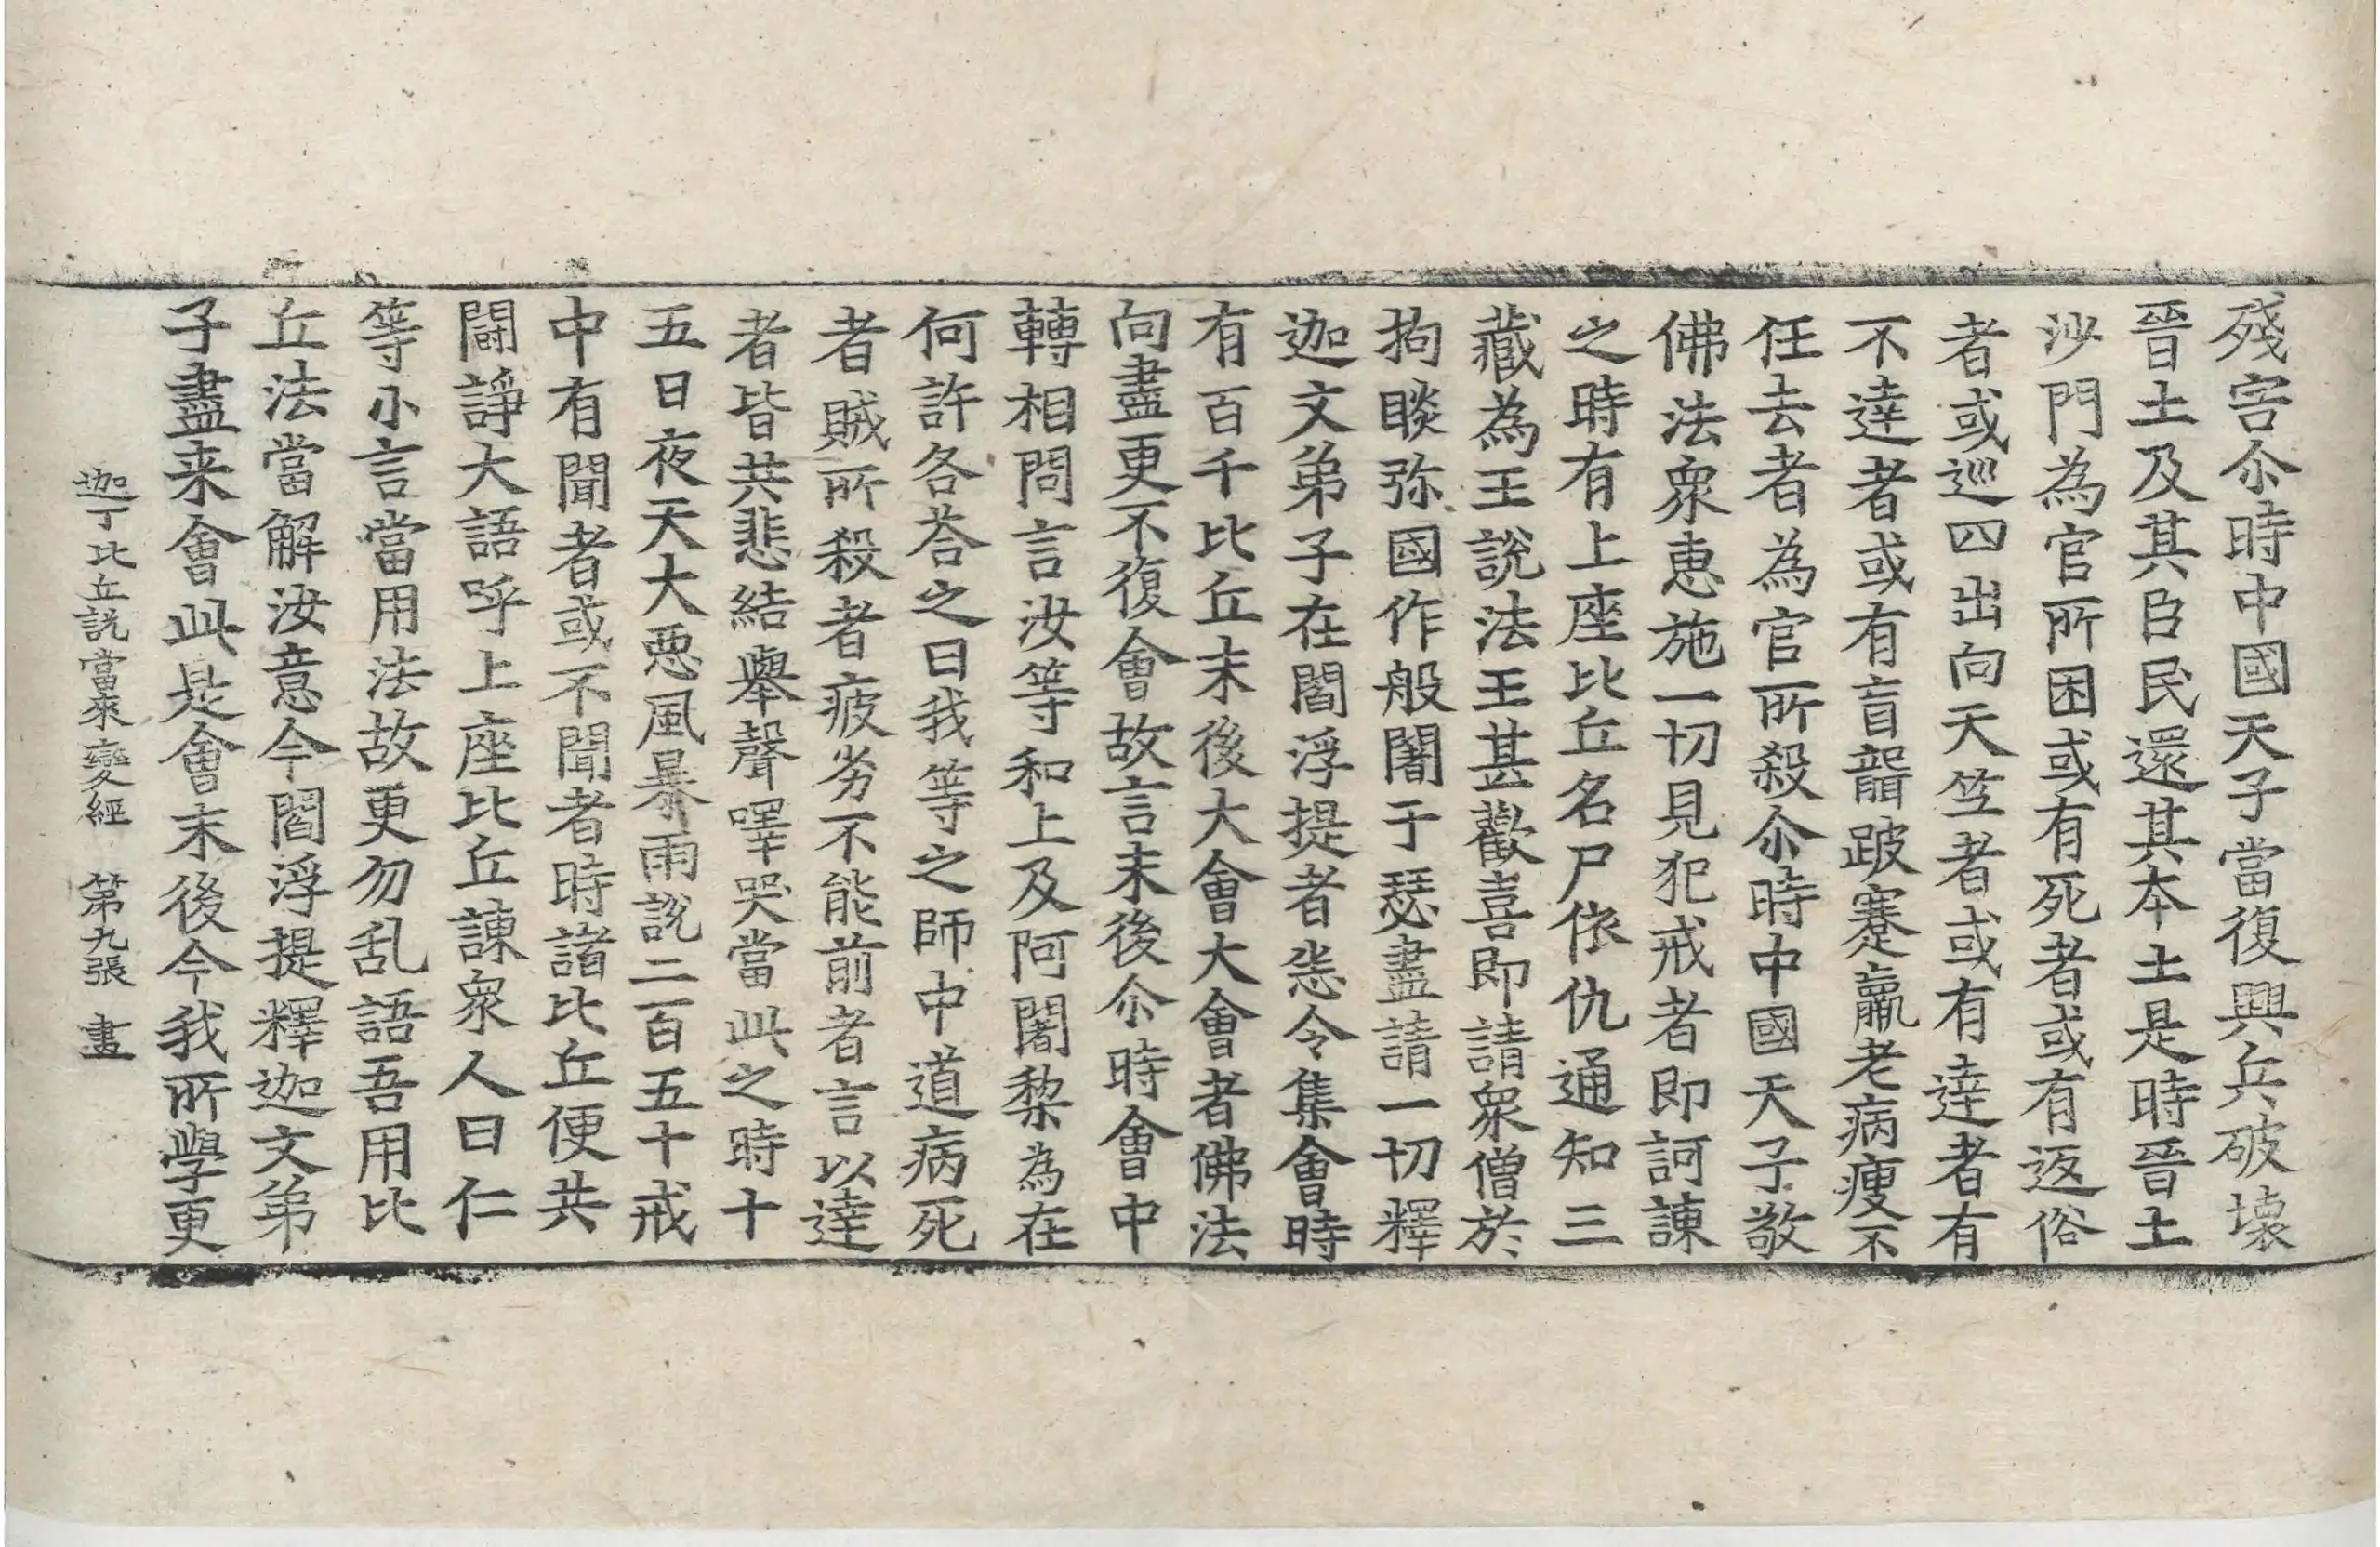 殘害尒時中國天子當復興兵破壞
晉土及其臣民還其本土是時晉土
沙門為官所困或有死者或有返俗
者或巡四出向天竺者或有達者有
不達者或有盲聾跛蹇羸老病瘦不
任去者為官所殺尒時中國天子敬
佛法衆惠施一切見犯戒者即訶諫
之時有上座比丘名尸依仇通知三
藏為王說法王甚歡喜即請衆僧於
拘睒弥國作般闍于瑟盡請一切釋
迦文弟子在閻浮提者悉令集會時
有百千比丘末後大會大會者佛法
向盡更不復會故言末後尒時會中
轉相問言汝等和上及阿闍黎為在
何許各荅之曰我等之師中道病死
者賊所殺者疲劣不能前者言以達
者皆共悲結舉聲嘾哭當此之時十
五日夜天大惡風暴雨說二百五十戒
中有聞者或不聞者時諸比丘便共
鬪諍大語呼上座比丘諫衆人曰仁
等小言當用法故更勿乱語吾用比
丘法當解汝意今閻浮提釋迦文弟
子盡来會此是會末後今我所學更
迦丁比丘說當來變經　第九張　畫